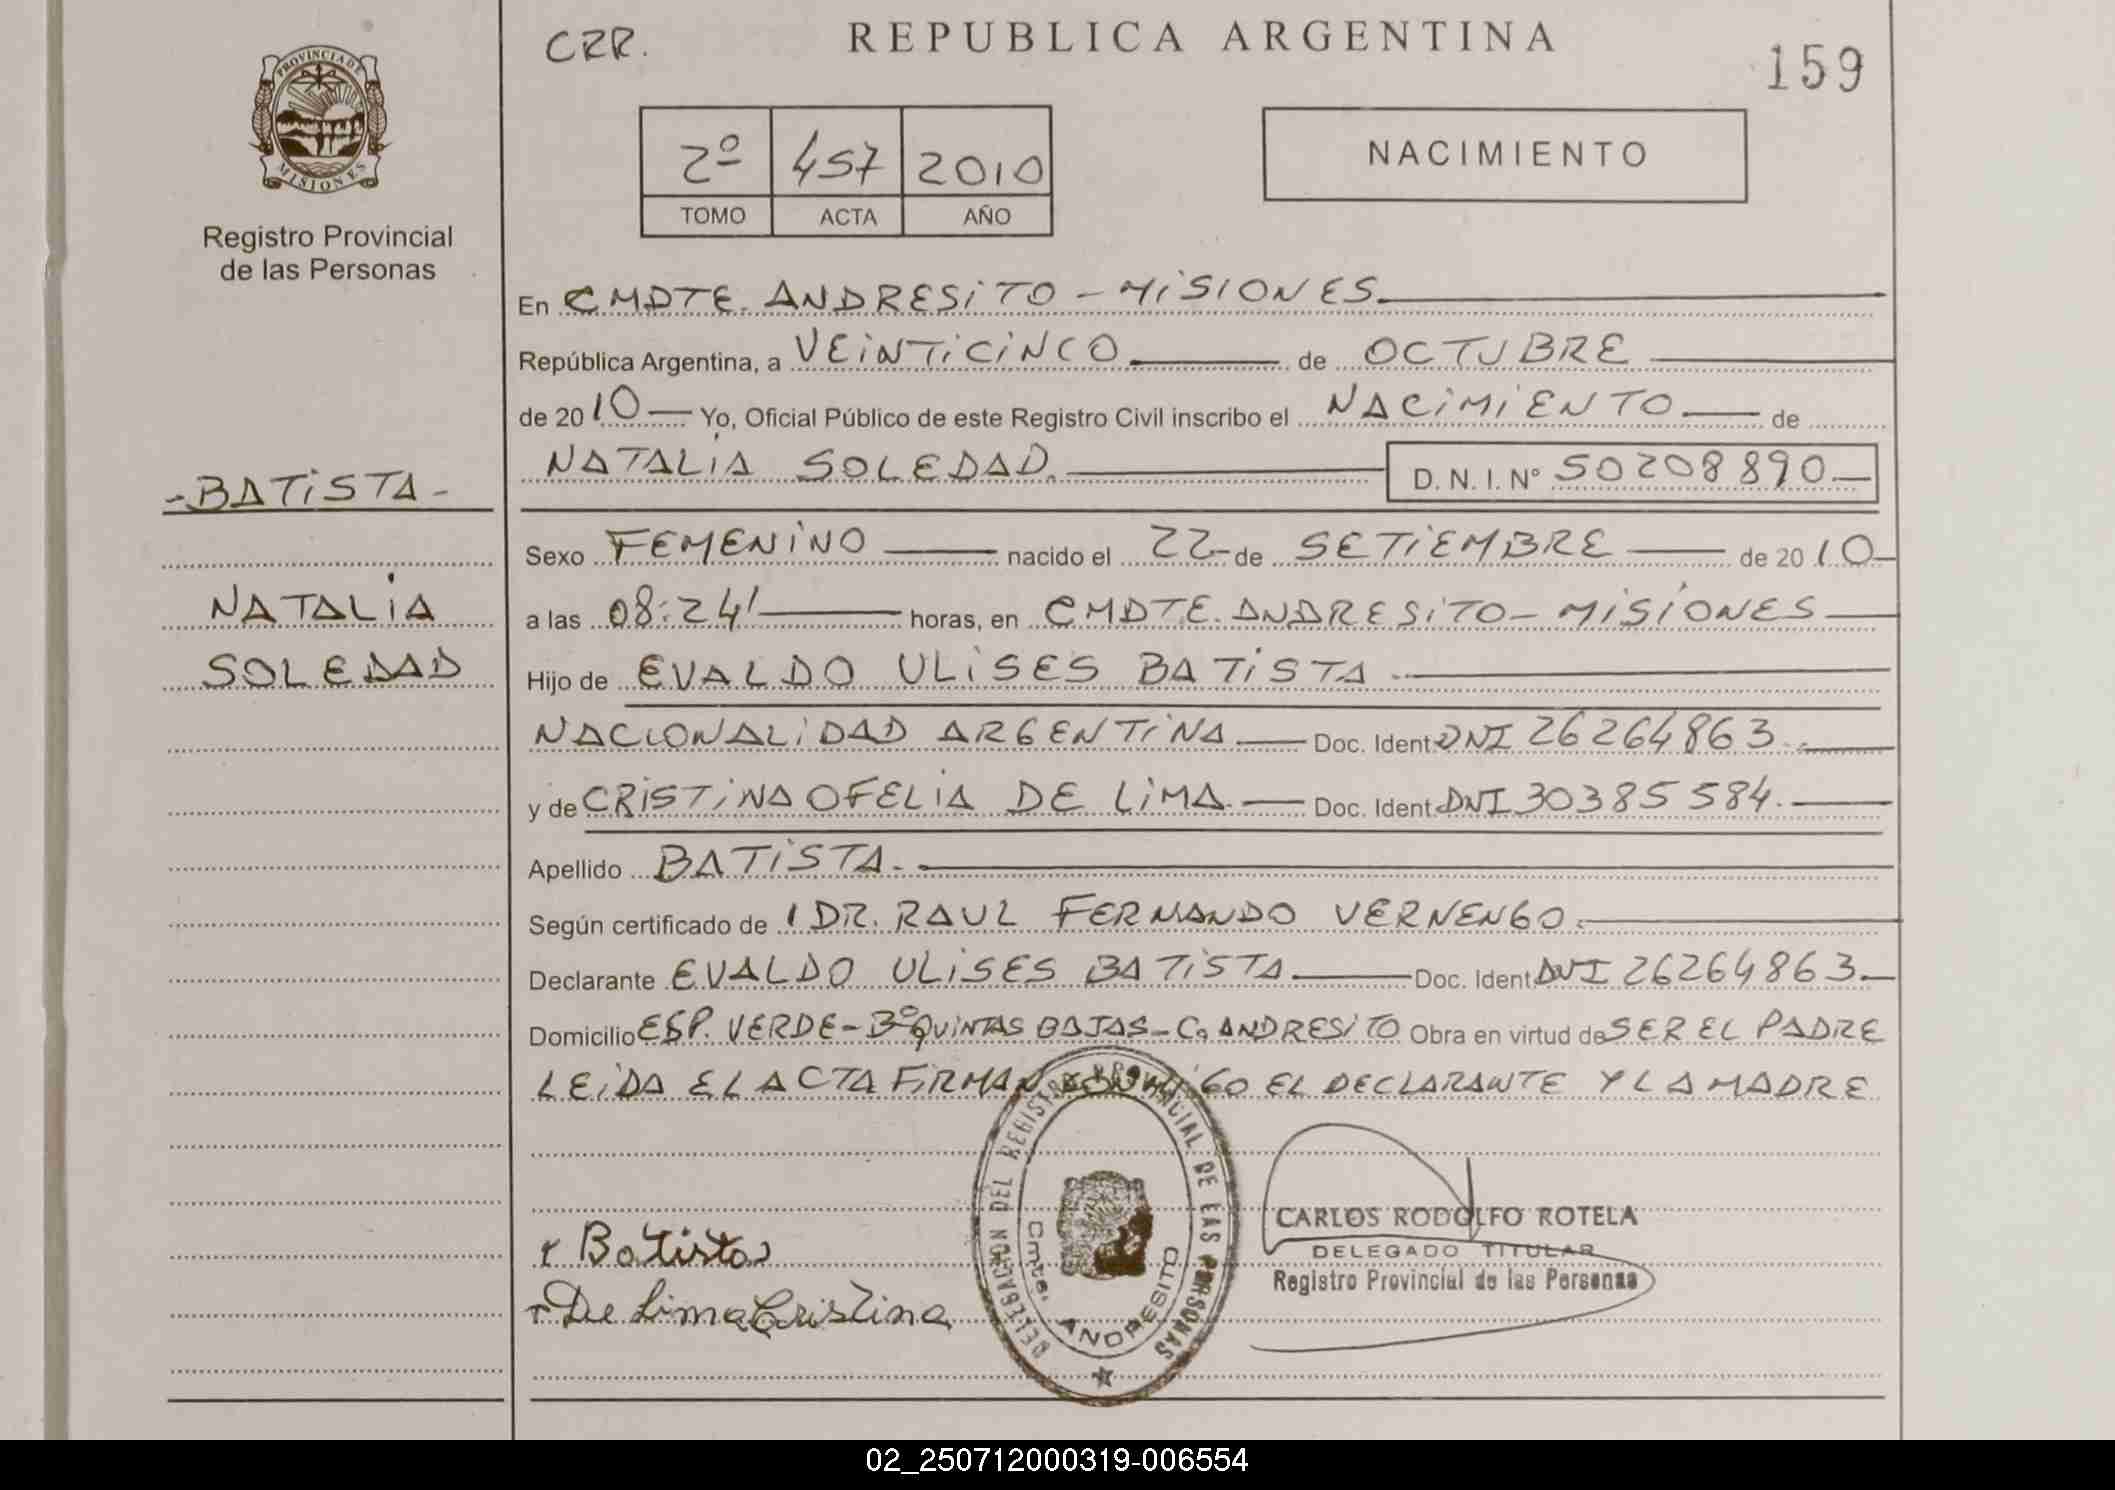 CRR.
REPUBLICA ARGENTINA
159
PROVINCIA DE
MISIONES
2º 457 2010
TOMO ACTA AÑO
NACIMIENTO
Registro Provincial
de las Personas
En CMDTE. ANDRESiTO - MiSIONES
República Argentina, a VEiNTiCiNCO de OCTUBRE
de 2010 Yo, Oficial Público de este Registro Civil inscribo el NACiMiENTO de
NATALiA SOLEDAD. D. N. I. Nº 50208890
-BATiSTA-
Sexo FEMENiNO nacido el 22 de SETiEMBRE de 2010
NATALiA
a las 08:24' horas, en CMDTE. ANDRESiTO - MiSiONES
SOLEDAD
Hijo de EVALDO ULiSES BATiSTA
NACIONALiDAD ARGENTiNA Doc. Ident DNI 26264863.
y de CRiSTiNA OFELiA DE LiMA. Doc. Ident DNI 30385584.
Apellido BATiSTA.
Según certificado de DR. RAUL FERNANDO VERNENGO.
Declarante EVALDO ULiSES BATiSTA. Doc. Ident DNI 26264863.
Domicilio ESP. VERDE - Bº QUiNTAS BAJAS - Co ANDRESiTO Obra en virtud de SER EL PADRE
LEiDA EL ACTA FiRMAN CONMiGO EL DECLARANTE Y LA MADRE
DELEGACION DEL REGISTRO PROVINCIAL DE LAS PERSONAS
Cmte. ANDRESITO
CARLOS RODOLFO ROTELA
DELEGADO TITULAR
Registro Provincial de las Personas
Batista
De Lima Cristina
02_250712000319-006554